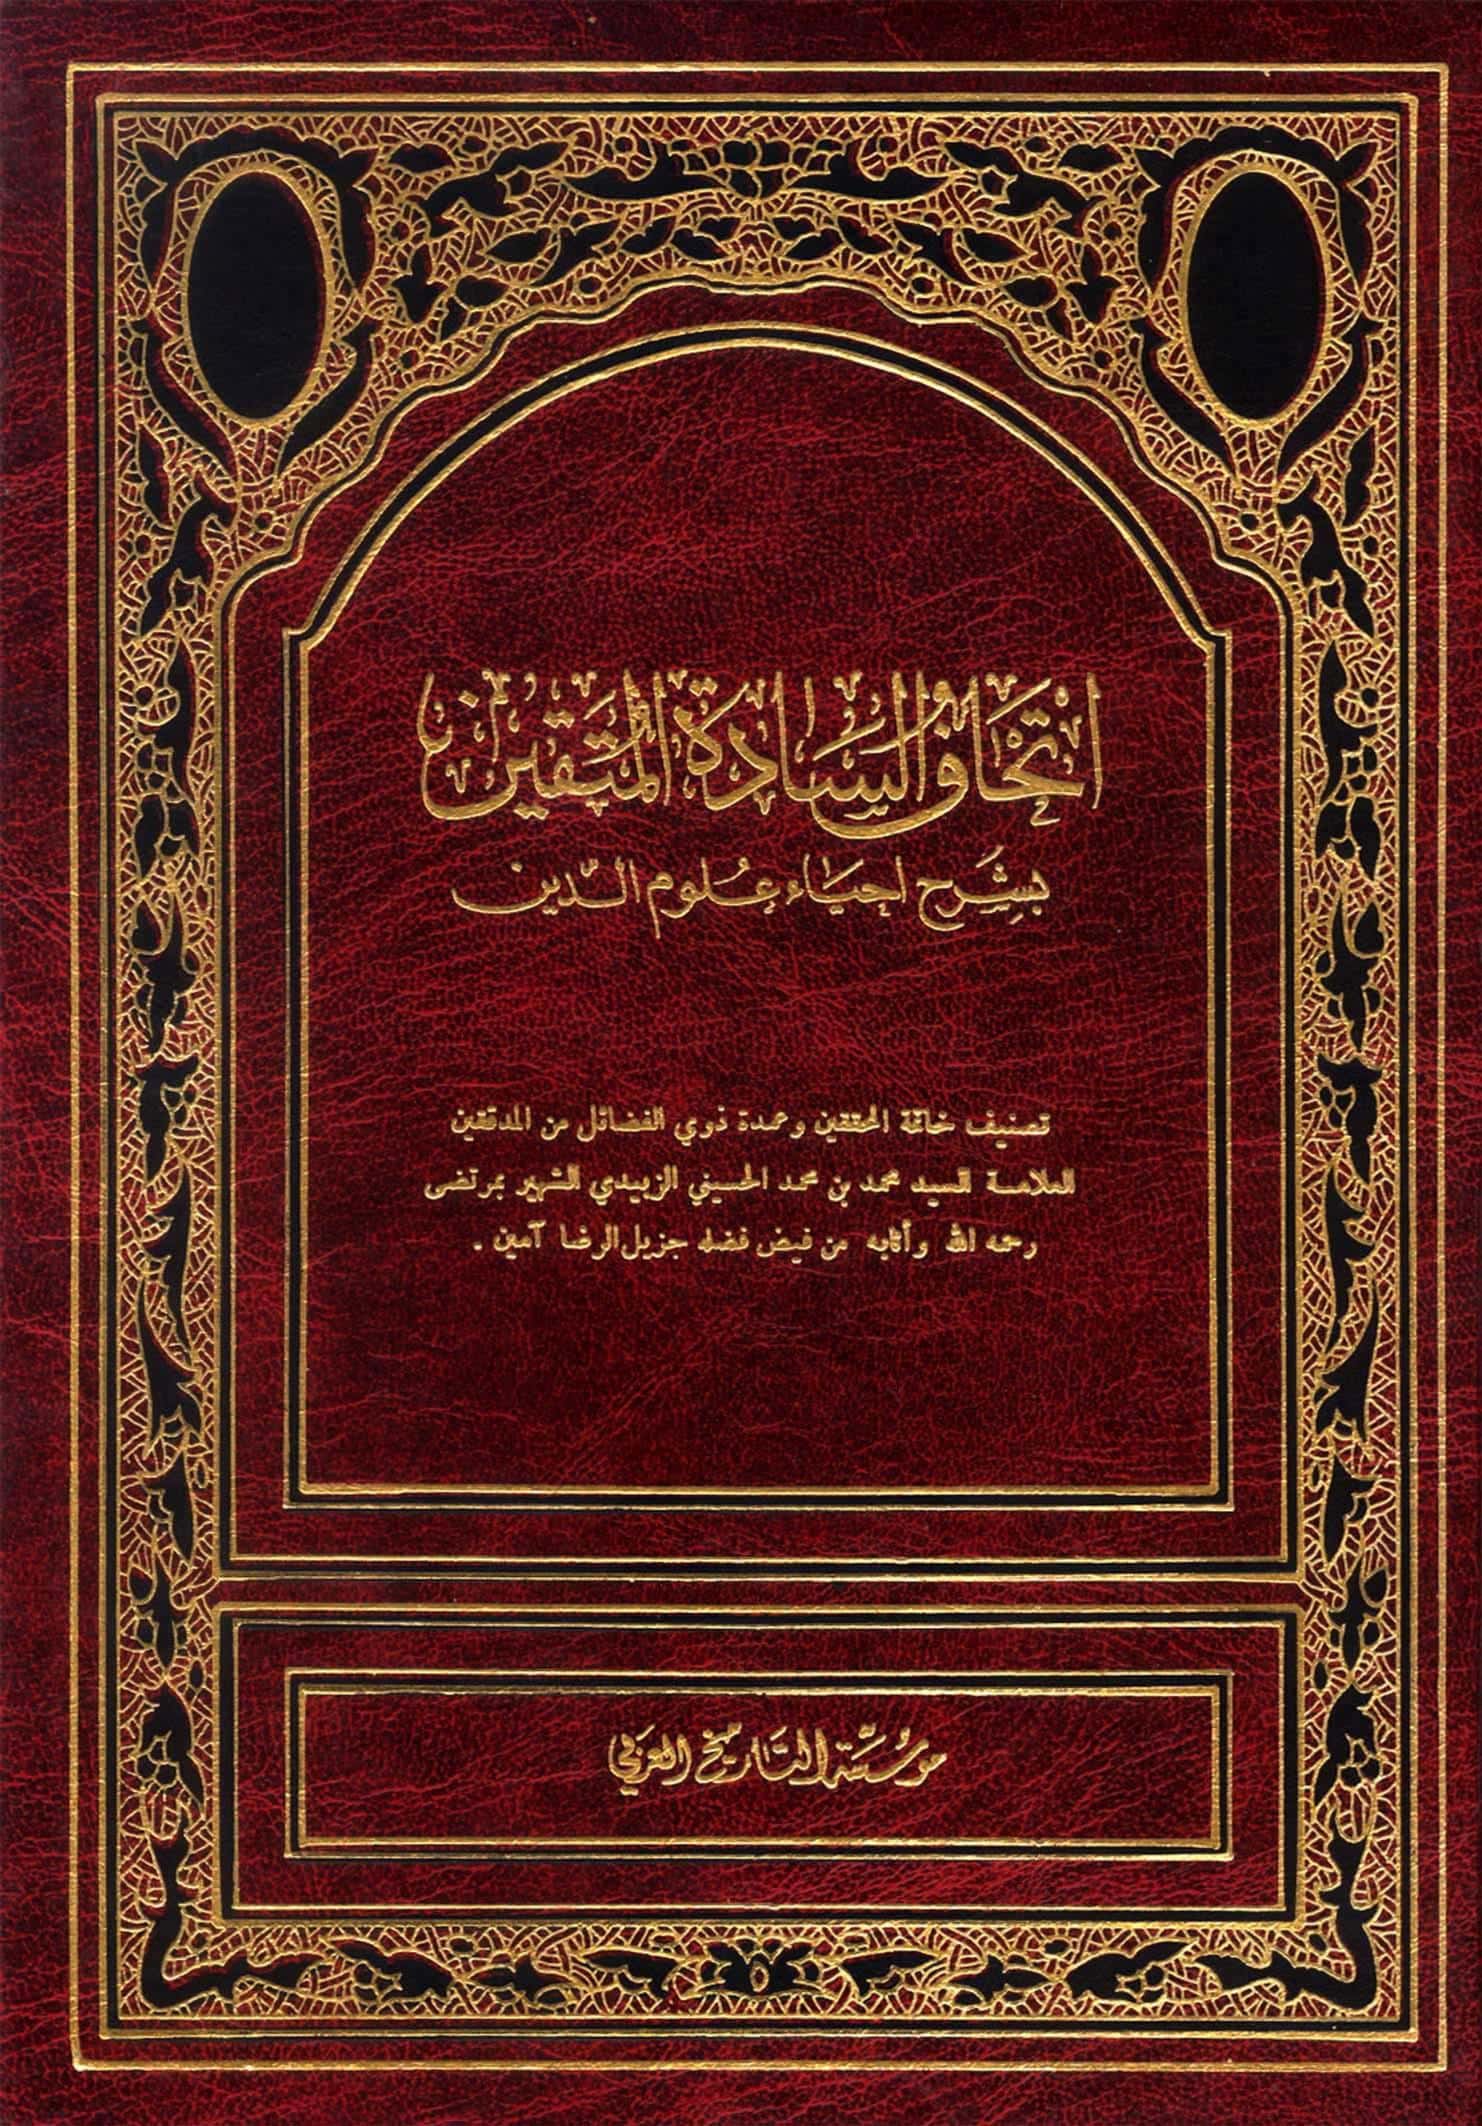 إتحاف السادة المتقين
بشرح إحياء علوم الدين
تصنيف خاتمة المحققين وعمدة ذوي الفضائل من المدققين
العلامة السيد محمد بن محمد الحسيني الزبيدي الشهير بمرتضى
رحمه الله وأثابه من فيض فضله جزيل الرضا آمين .
مؤسسة التاريخ العربي